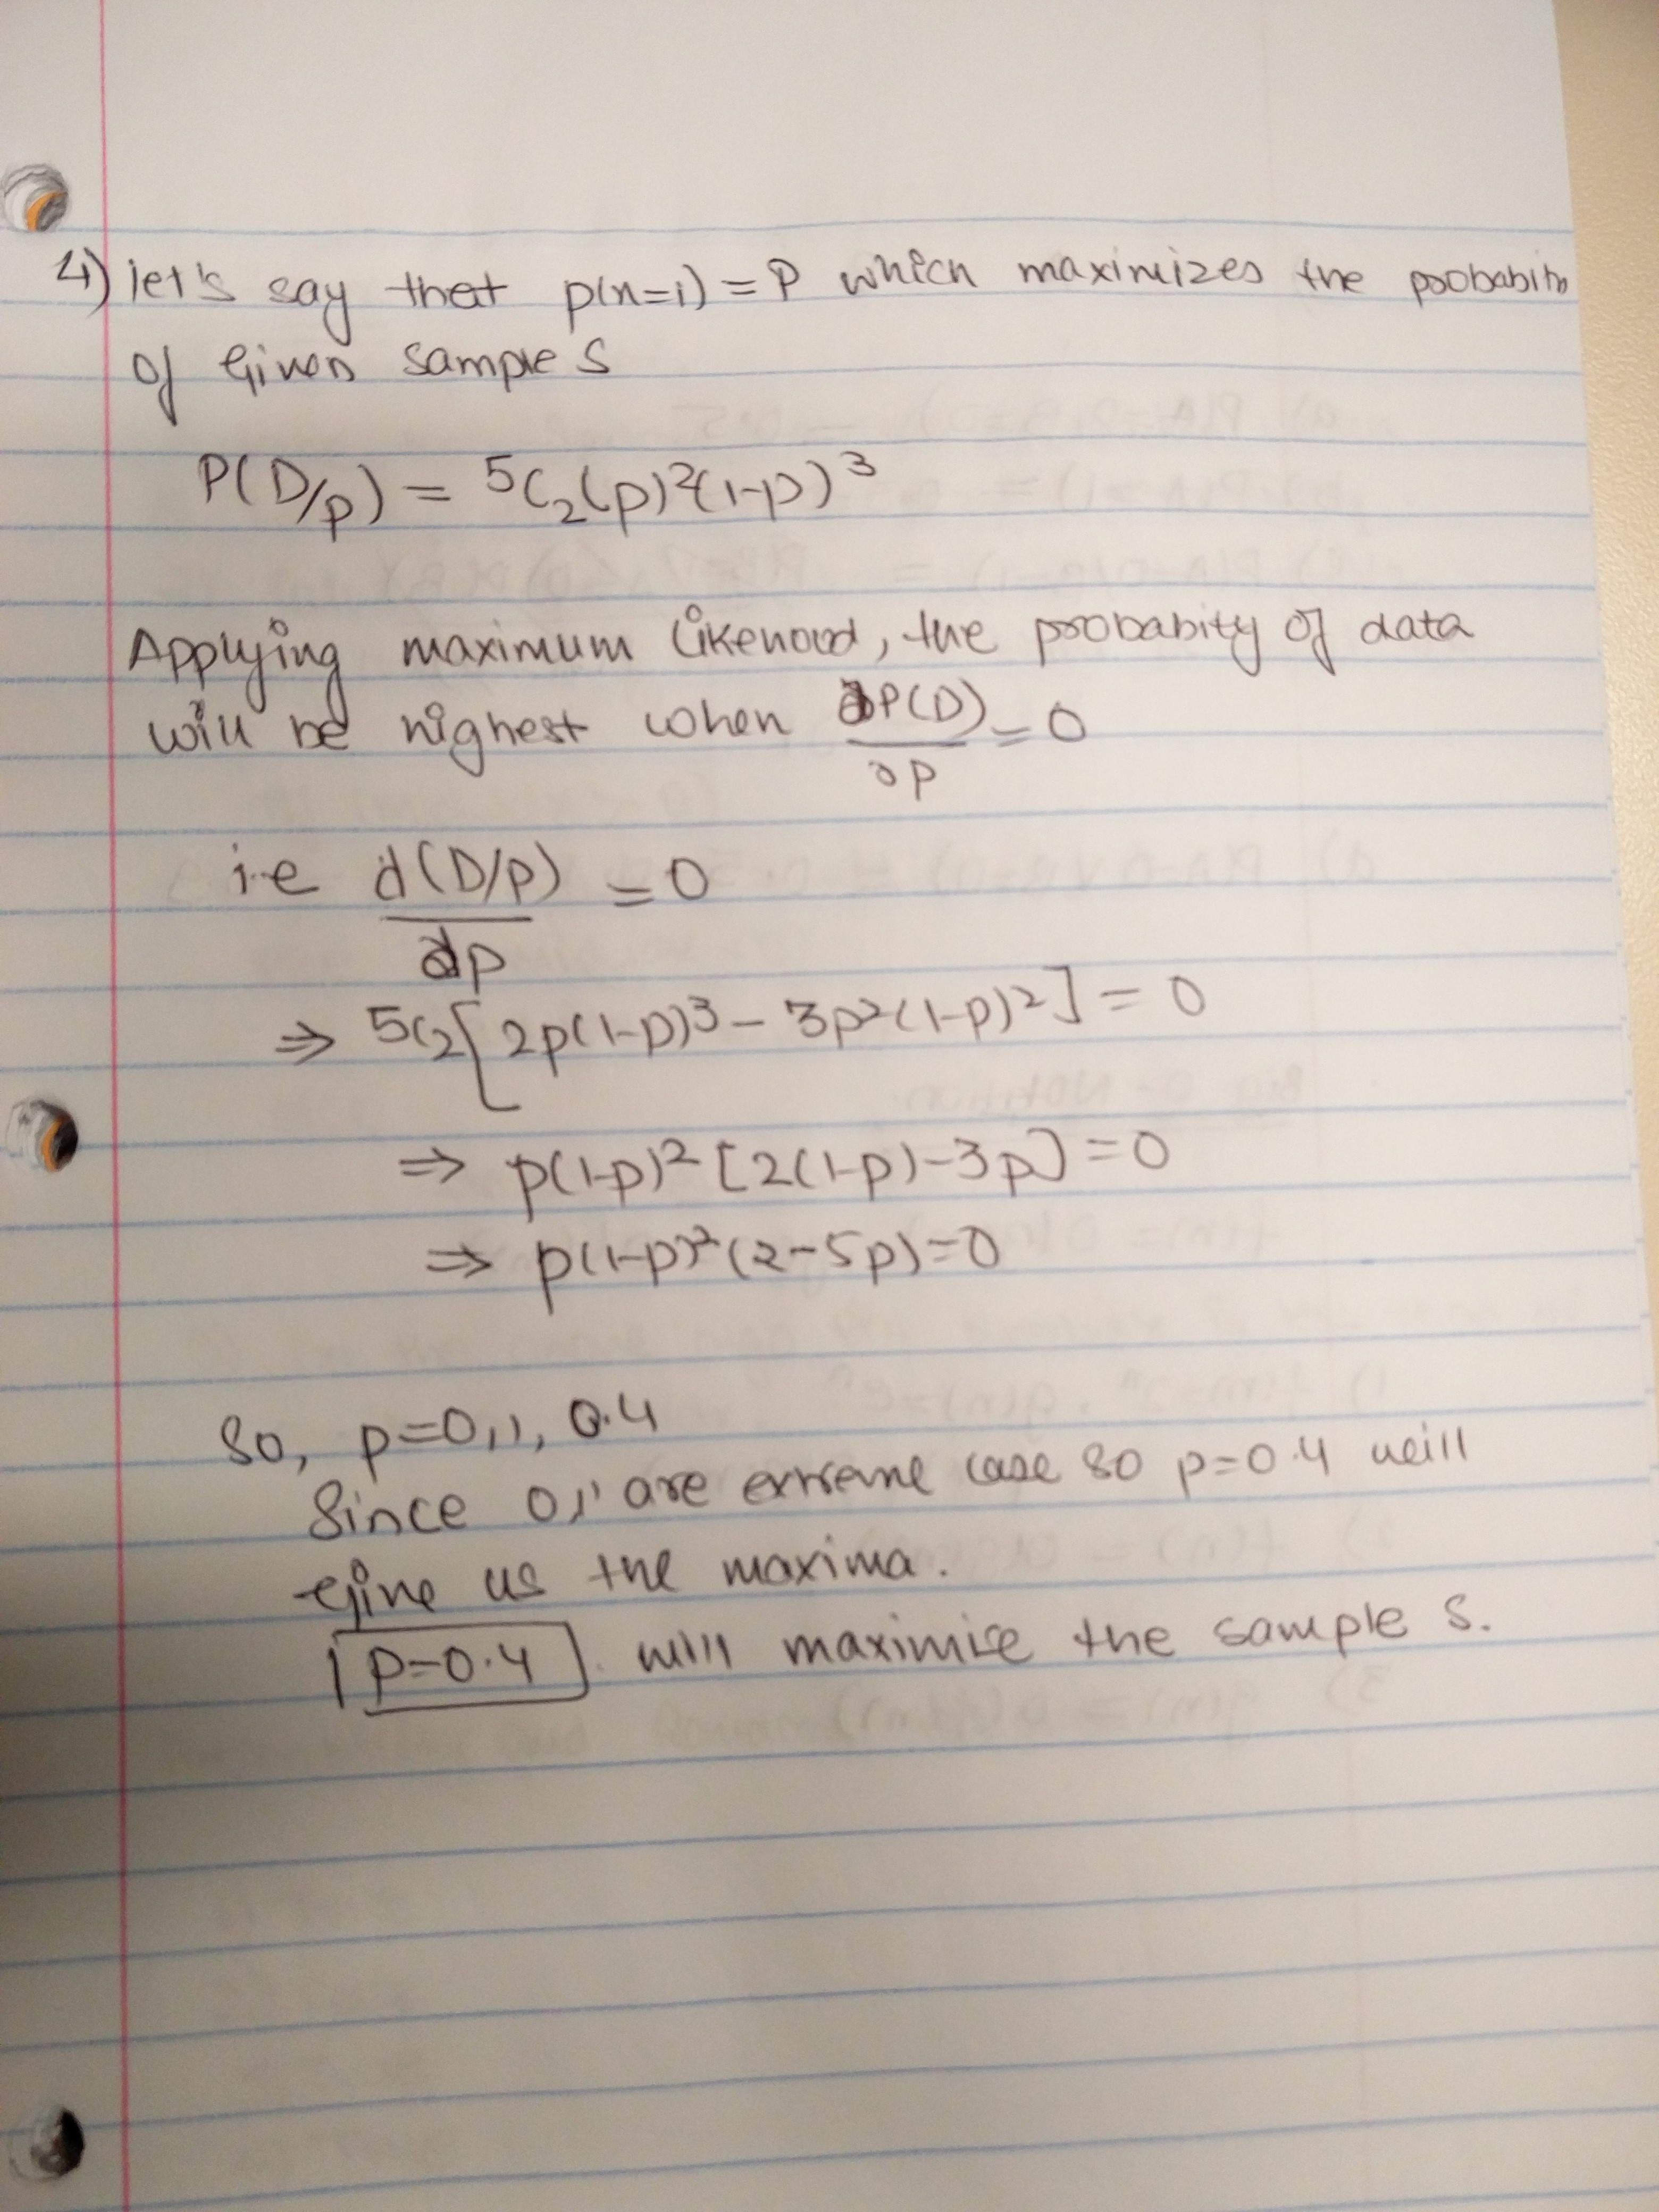 4) let's say that p(x=1) = P which maximizes the probability
of Given sample S
P(D/p) = 5C₂(p)²(1-p)³
Applying maximum likehood, the probabity of data
will be highest when ∂P(D)/∂p = 0
i.e d(D/p)/dp = 0
⇒ 5C₂[2p(1-p)³ - 3p²(1-p)²] = 0
⇒ p(1-p)² [2(1-p)-3p] = 0
⇒ p(1-p)²(2-5p)=0
So, p=0,1, 0.4
Since 0,1 are extreme case so p=0.4 will
give us the maxima.
p=0.4 will maximise the sample S.